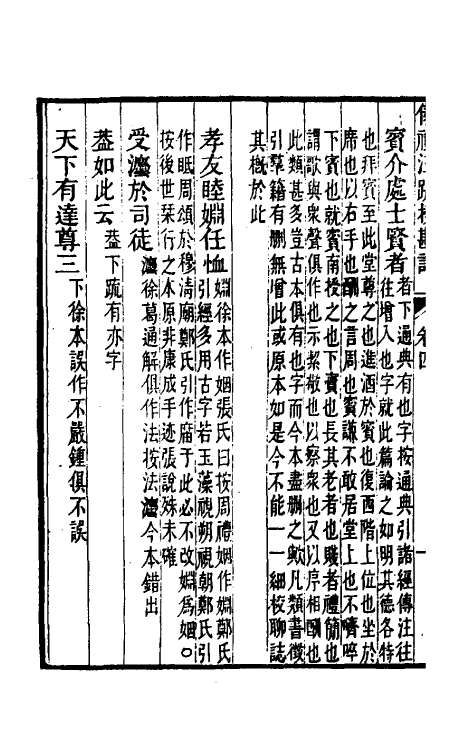 儀禮注疏校勘記 卷四 一
賓介處士賢者 者下通典有也字按通典引諸經傳注往
往增入也字就此篇論之如明其德各特
也拜賓至此堂尊之也進酒於賓也復西階上位也坐於
席也以右手也酬之言周也賓謙不敢居堂上也不嚌啐
下賓也就賓南授之也下賓也長其老者也賤者禮簡也
謂歌與衆聲俱作也示潔敬也以察衆也又以序相酬也
此類甚多豈古本俱有也字而今本盡刪之歟凡類書徵
引羣籍有刪無增此或原本如是今不能一一細校聊誌
其槪於此
孝友睦婣任恤 婣徐本作姻張氏曰按周禮姻作婣鄭氏
引經多用古字若玉藻視朔視朝鄭氏引
作眡周頌於穆清廟鄭氏引作庿于此必不改婣爲姻〇
按後世栞行之本原非康成手迹張說殊未確
受灋於司徒 灋徐葛通解俱作法按法灋今本錯出
葢如此云 葢下疏有亦字
天下有達尊三 下徐本誤作不嚴鍾俱不誤